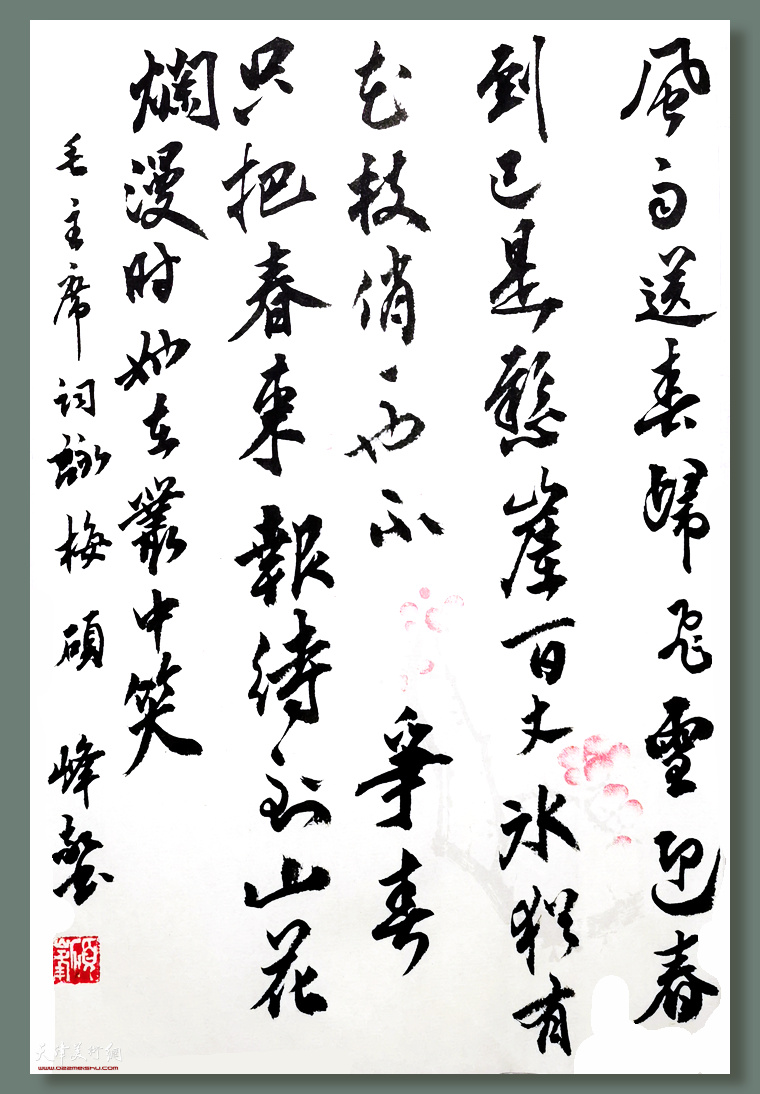 風雨送春歸飛雪迎春
到已是懸崖百丈冰猶有
花枝俏也不爭春
只把春來報待到山花
爛漫时她在叢中笑
毛主席词詠梅 碩峰
天津美術網
www.022meishu.com